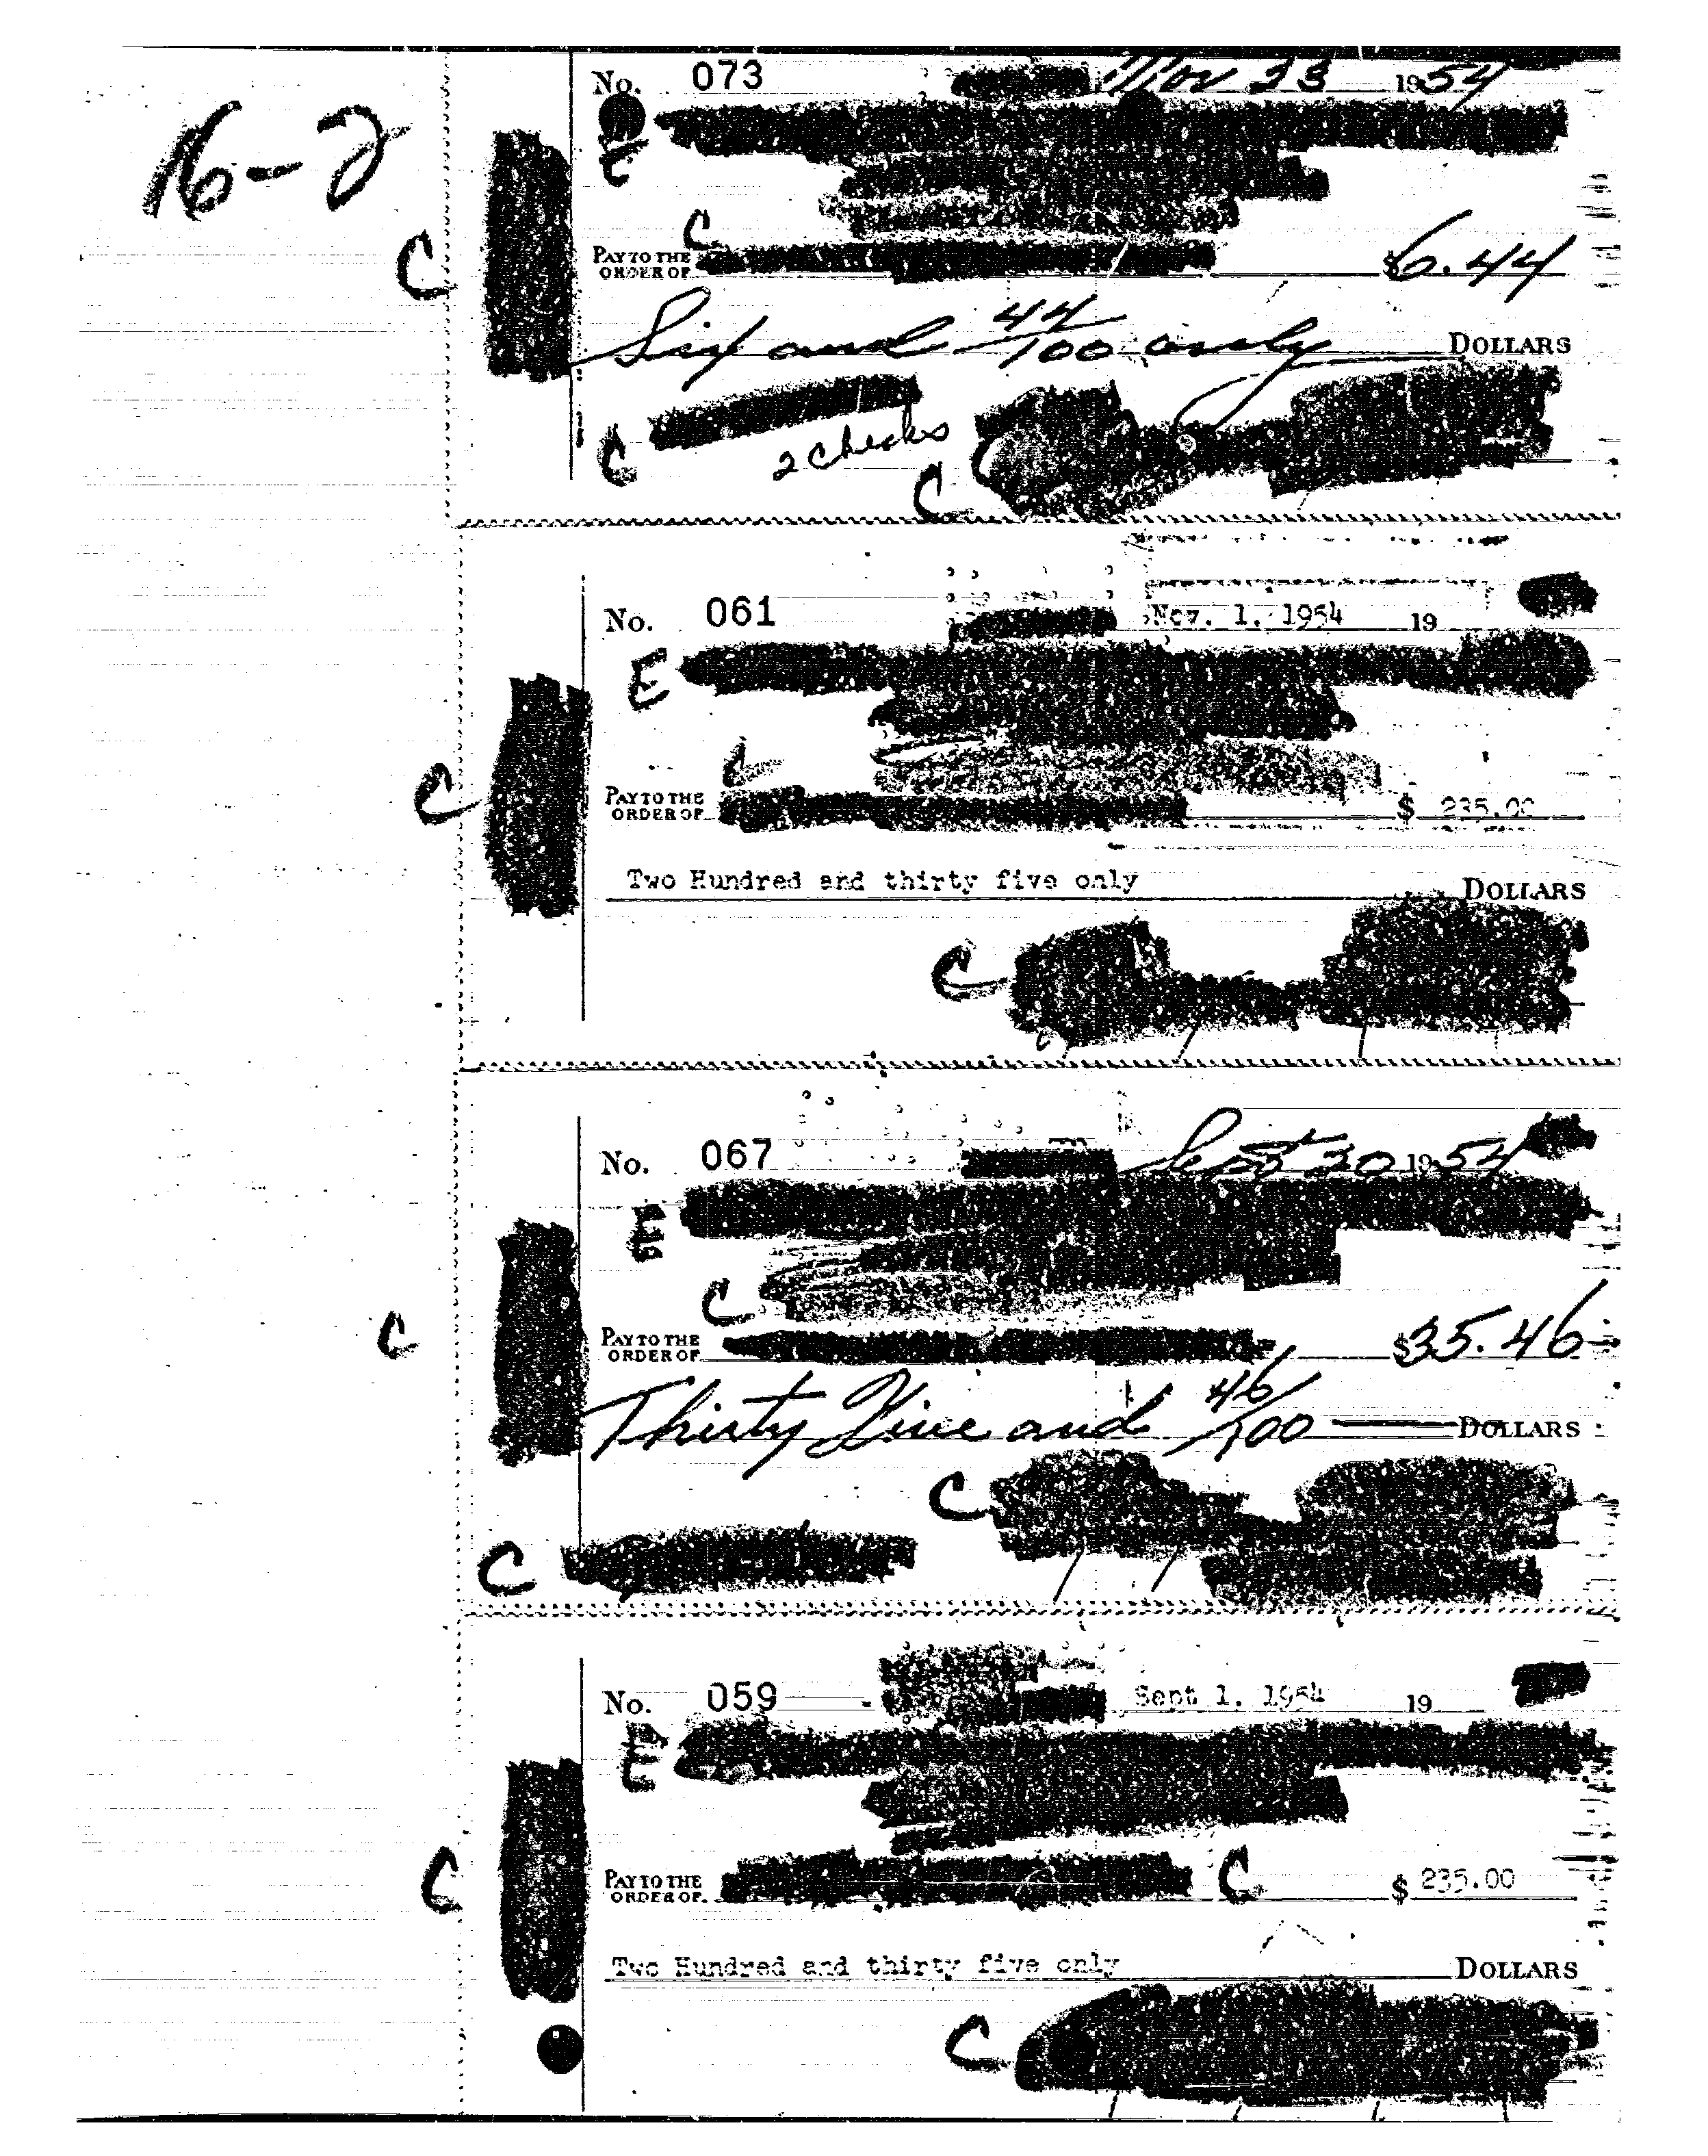 16-2
No. 073 Nov 23 1954
C
C
C
PAY TO THE
ORDER OF $6.44
Six and 44/100 only DOLLARS
C
2 checks
C
C
No. 061 Nov. 1, 1954 19
E
C
C
PAY TO THE
ORDER OF $ 235.00
Two Hundred and thirty five only DOLLARS
C
No. 067 Sept 30 1954
E
C
C
PAY TO THE
ORDER OF $35.46
Thirty Five and 46/100 DOLLARS
C
C
No. 059 Sept 1, 1954 19
E
C
PAY TO THE
ORDER OF C $ 235.00
Two Hundred and thirty five only DOLLARS
C